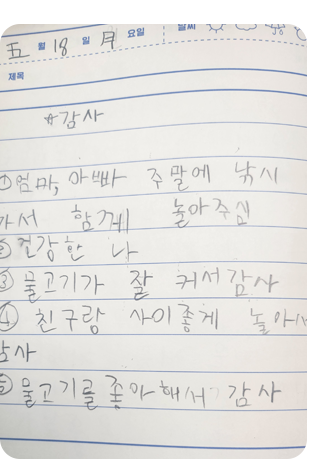 五 월 18 일 月 요일 날씨
제목
☆감사
①엄마, 아빠 주말에 낚시
가서 함께 놀아주심
②건강한 나
③물고기가 잘 커서 감사
④ 친구랑 사이좋게 놀아서
감사
⑤물고기를 좋아해서 감사